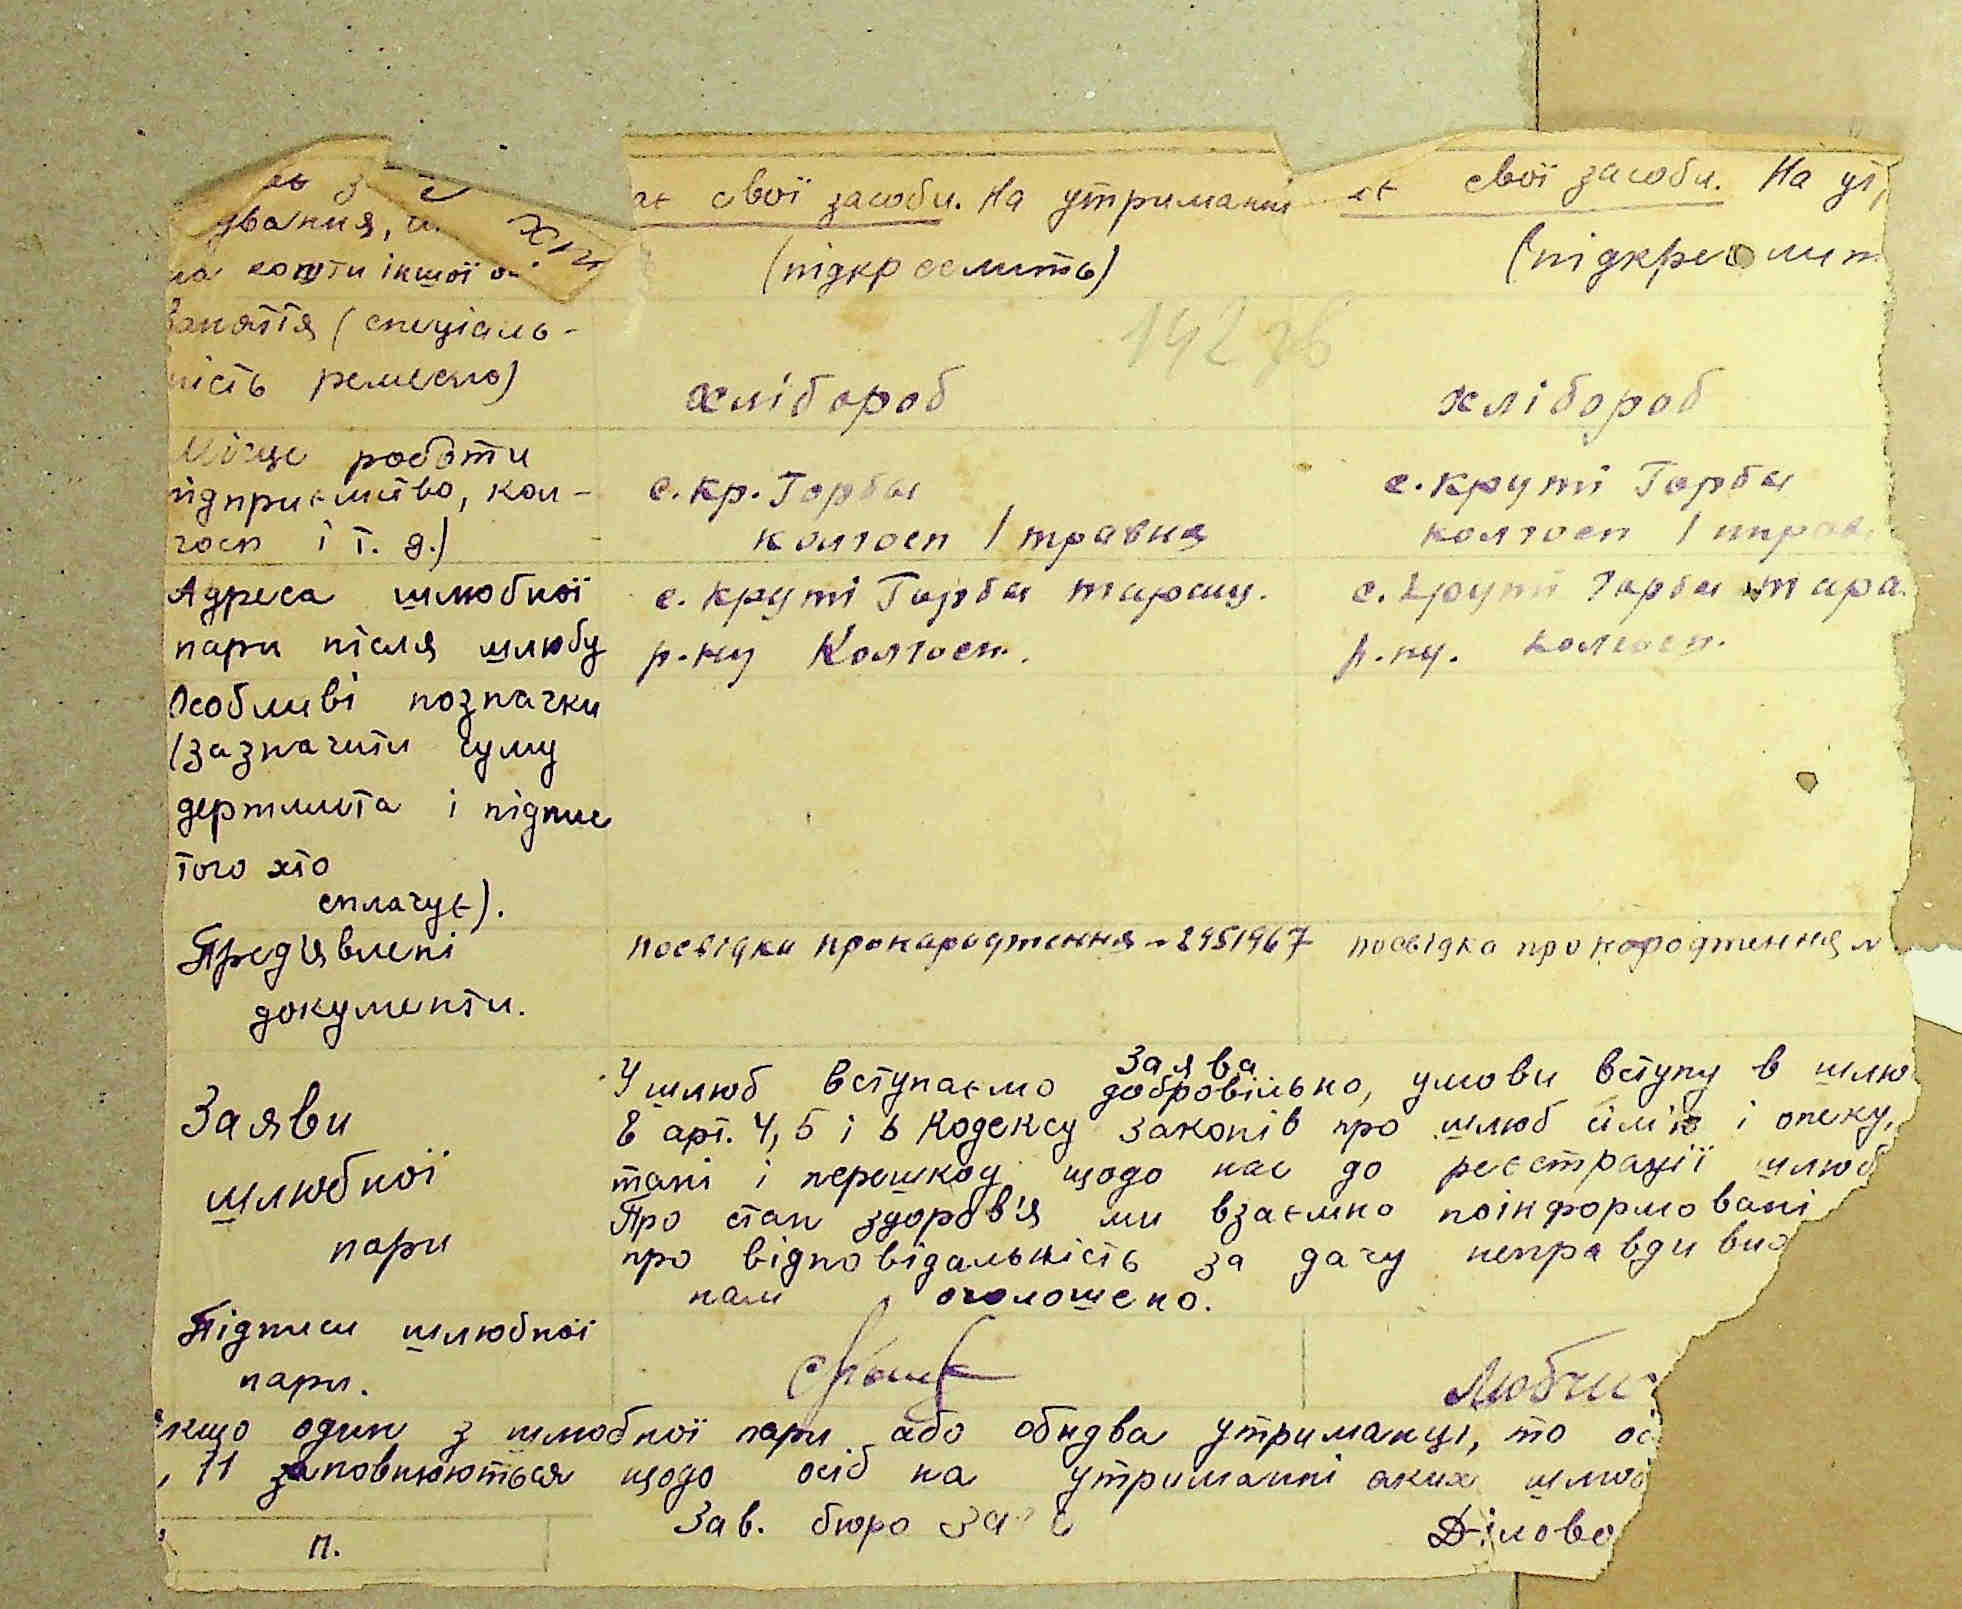 ає свої засоби. На утриманні
ає свої засоби. На ут
ування,
на кошти іншої
(підкреслить)
(підкреслит
Заняття (спеціаль-
ність ремесло)
хлібороб
хлібороб
Місце роботи
підприємство, кол-
госп і т. д.)
с. кр. Горби
колгосп 1 травня
с. круті Горби
колгосп 1 трав.
Адреса шлюбної
пари після шлюбу
с. круті Горби таращ.
р-ну Колгосп.
с. Круті Горби тара.
р-ну. колгосп.
Особливі позначки
(зазначити суму
держмита і підпис
того хто
сплачує).
Пред'явлені
документи.
посвідка пронародження - 2951967
посвідка про народження
Заяви
шлюбної
пари
Заява
У шлюб вступаємо добровільно, умови вступу в шлю
в арт. 4, 5 і 6 Кодексу законів про шлюб сім'ю і опеку,
тані і перешкод щодо нас до реєстрації шлюб
Про стан здоров'я ми взаємно поінформовані
про відповідальність за дачу неправдивих
нам оголошено.
Підписи шлюбної
пари.
Любчи
якщо один з шлюбної пари або обидва утриманці, то ос
, 11 заповнюються щодо осіб на утриманні яких шлюб
п.
Зав. бюро заг
Ділово